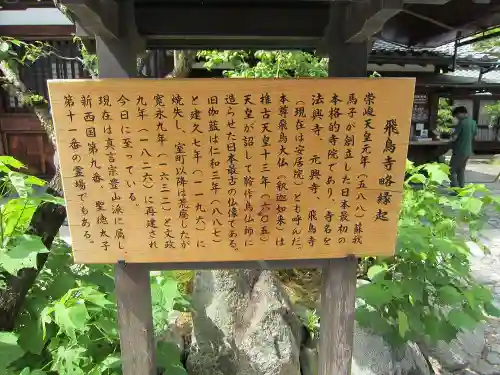 飛鳥寺略縁起
崇峻天皇元年（五八八）蘇我
馬子が創立した日本最初の
本格的寺院であり、寺名を
法興寺、元興寺、飛鳥寺
（現在は安居院）とも呼んだ。
本尊飛鳥大仏（釈迦如来）は
推古天皇十三年（六〇五）
天皇が詔して鞍作鳥仏師に
造らせた日本最古の仏像である。
旧伽藍は仁和三年（八八七）
と建久七年（一一九六）に
焼失し、室町以降は荒廃したが
寛永九年（一六三二）と文政
九年（一八二六）に再建され
今日に至っている。
現在は真言宗豊山派に属し
新西国第九番、聖徳太子
第十一番の霊場でもある。